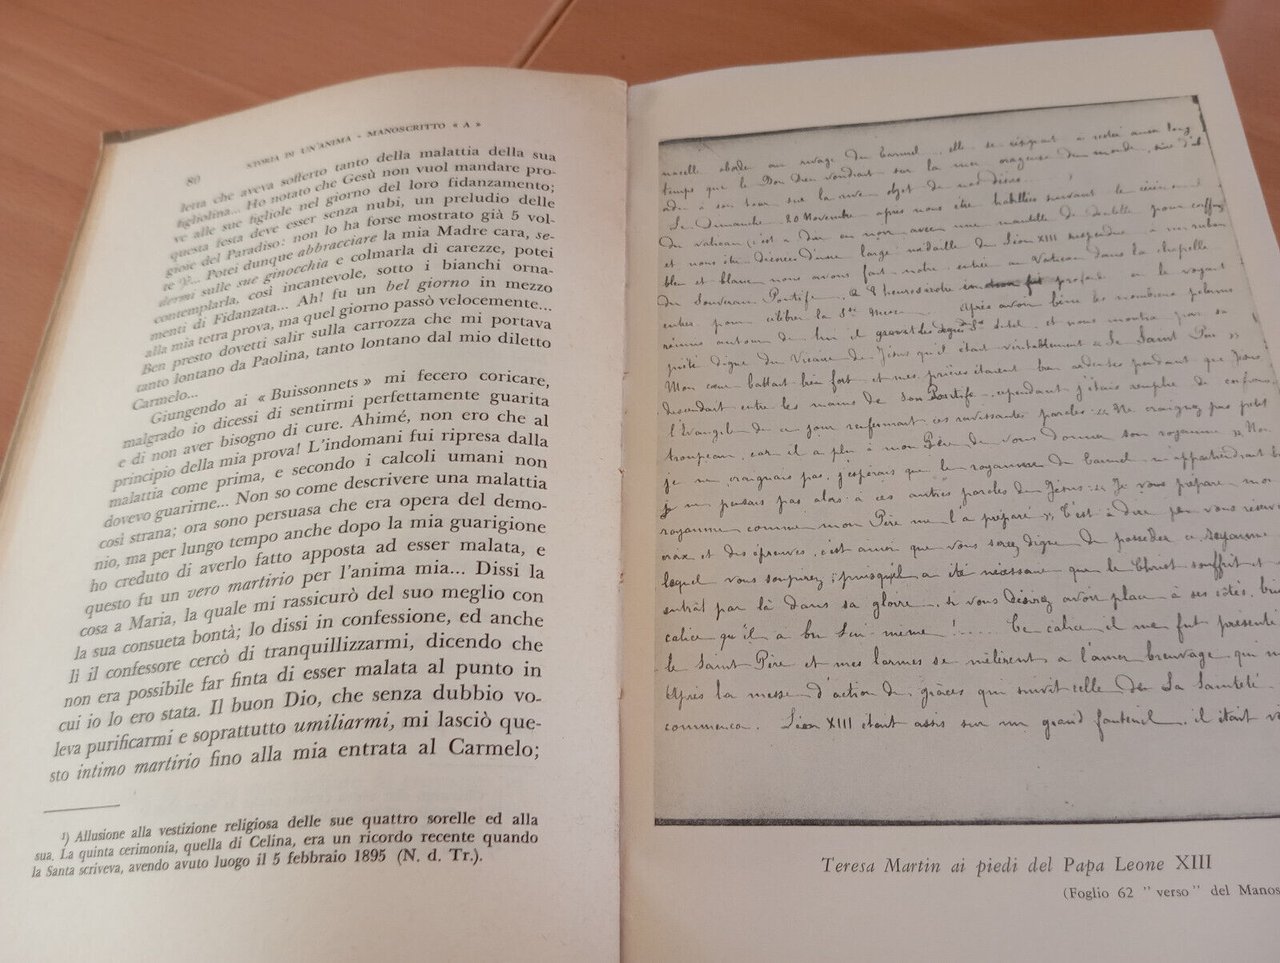 80
STORIA DI UN'ANIMA - MANOSCRITTO « A »
letta che aveva sofferto tanto della malattia della sua
figliolina... Ho notato che Gesù non vuol mandare pro-
ve alle sue figliole nel giorno del loro fidanzamento;
questa festa deve esser senza nubi, un preludio delle
gioie del Paradiso: non lo ha forse mostrato già 5 vol-
te ¹)... Potei dunque abbracciare la mia Madre cara, se-
dermi sulle sue ginocchia e colmarla di carezze, potei
contemplarla, così incantevole, sotto i bianchi orna-
menti di Fidanzata... Ah! fu un bel giorno in mezzo
alla mia tetra prova, ma quel giorno passò velocemente...
Ben presto dovetti salir sulla carrozza che mi portava
tanto lontano da Paolina, tanto lontano dal mio diletto
Carmelo...
Giungendo ai « Buissonnets » mi fecero coricare,
malgrado io dicessi di sentirmi perfettamente guarita
e di non aver bisogno di cure. Ahimé, non ero che al
principio della mia prova! L'indomani fui ripresa dalla
malattia come prima, e secondo i calcoli umani non
dovevo guarirne... Non so come descrivere una malattia
così strana; ora sono persuasa che era opera del demo-
nio, ma per lungo tempo anche dopo la mia guarigione
ho creduto di averlo fatto apposta ad esser malata, e
questo fu un vero martirio per l'anima mia... Dissi la
cosa a Maria, la quale mi rassicurò del suo meglio con
la sua consueta bontà; lo dissi in confessione, ed anche
lì il confessore cercò di tranquillizzarmi, dicendo che
non era possibile far finta di esser malata al punto in
cui io lo ero stata. Il buon Dio, che senza dubbio vo-
leva purificarmi e soprattutto umiliarmi, mi lasciò que-
sto intimo martirio fino alla mia entrata al Carmelo;
¹) Allusione alla vestizione religiosa delle sue quattro sorelle ed alla
sua. La quinta cerimonia, quella di Celina, era un ricordo recente quando
la Santa scriveva, avendo avuto luogo il 5 febbraio 1895 (N. d. Tr.).
nacelle aborde au rivage du Carmel, elle se résignait à rester aussi long
temps que le Bon Dieu voudrait sur la mer orageuse du monde,
Le Dimanche 20 Novembre après nous être habillées suivant le
du vatican (c'est à dire en noir avec une mantille de dentelle pour coiffure
et nous être décorées d'une large médaille de Léon XIII suspendue à un ruban
bleu et blanc nous avons fait notre entrée au Vatican dans la chapelle
du Souverain Pontife, à 8 heures notre profonde en le voyant
entrer pour célébrer la Ste Messe Après avoir béni les nombreux pèlerins
réunis autour de lui il gravit les degrés du St Autel, et nous montra par sa
piété digne du Vicaire de Jésus qu'il était véritablement « Le Saint Père »
Mon cœur battait bien fort et mes prières étaient bien ardentes pendant que Jésus
descendait entre les mains de son Pontife, cependant j'étais remplie de confiance
l'Evangile de ce jour renfermait ces ravissantes paroles: « Ne craignez pas petit
troupeau, car il a plu à mon Père de vous donner son royaume » Non
je ne craignais pas, j'espérais que le royaume du Carmel m'appartiendrait
je ne pensais pas alors à ces autres paroles de Jésus: « Je vous prépare mon
royaume comme mon Père me l'a préparé ». C'est à dire je vous réserve
croix et des épreuves, c'est ainsi que vous serez digne de posséder ce royaume
lequel vous soupirez; puisqu'il a été nécessaire que le Christ souffrit et
entrât par là dans sa gloire, si vous désirez avoir place à ses côtés,
calice qu'il a bu lui-même!..... Ce calice il me fut présenté
le Saint Père et mes larmes se mêlèrent à l'amer breuvage qui
Après la messe d'action de grâces qui suivit celle de Sa Sainteté
commença. Léon XIII était assis sur un grand fauteuil, il était
Teresa Martin ai piedi del Papa Leone XIII
(Foglio 62 " verso " del Manos